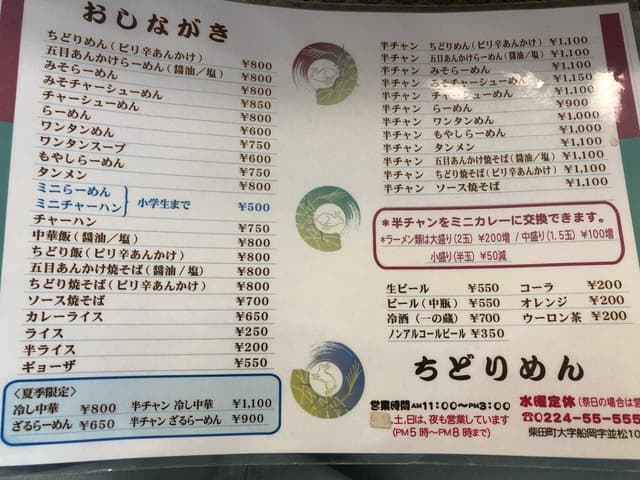 おしながき
ちどりめん(ピリ辛あんかけ) ¥800
五目あんかけらーめん(醤油/塩) ¥800
みそらーめん ¥800
みそチャーシューめん ¥850
チャーシューめん ¥800
らーめん ¥600
ワンタンめん ¥750
ワンタンスープ ¥600
もやしらーめん ¥750
タンメン ¥800
ミニらーめん
ミニチャーハン 小学生まで ¥500
チャーハン ¥750
中華飯(醤油/塩) ¥800
ちどり飯(ピリ辛あんかけ) ¥800
五目あんかけ焼そば(醤油/塩) ¥800
ちどり焼そば(ピリ辛あんかけ) ¥800
ソース焼そば ¥700
カレーライス ¥650
ライス ¥250
半ライス ¥200
ギョーザ ¥550
〈夏季限定〉
冷し中華 ¥800 半チャン 冷し中華 ¥1,100
ざるらーめん ¥650 半チャン ざるらーめん ¥900
半チャン ちどりめん(ピリ辛あんかけ) ¥1,100
半チャン 五目あんかけらーめん(醤油/塩) ¥1,100
半チャン みそらーめん ¥1,100
半チャン みそチャーシューめん ¥1,150
半チャン チャーシューめん ¥1,100
半チャン らーめん ¥900
半チャン ワンタンめん ¥1,000
半チャン もやしらーめん ¥1,000
半チャン タンメン ¥1,100
半チャン 五目あんかけ焼そば(醤油/塩) ¥1,100
半チャン ちどり焼そば(ピリ辛あんかけ) ¥1,100
半チャン ソース焼そば ¥1,100
*半チャンをミニカレーに交換できます。
*ラーメン類は大盛り(2玉) ¥200増 / 中盛り(1.5玉) ¥100増
小盛り(半玉) ¥50減
生ビール ¥550 コーラ ¥200
ビール(中瓶) ¥550 オレンジ ¥200
冷酒(一の蔵) ¥700 ウーロン茶 ¥200
ノンアルコールビール ¥350
ちどりめん
営業時間 AM11:00〜PM3:00
土,日は、夜も営業しています
(PM5時〜PM8時まで)
水曜定休(祭日の場合は営
☎0224-55-555
柴田町大字船岡字並松10